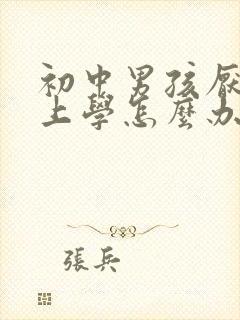 初中男孩厭
上學怎麼办
張兵